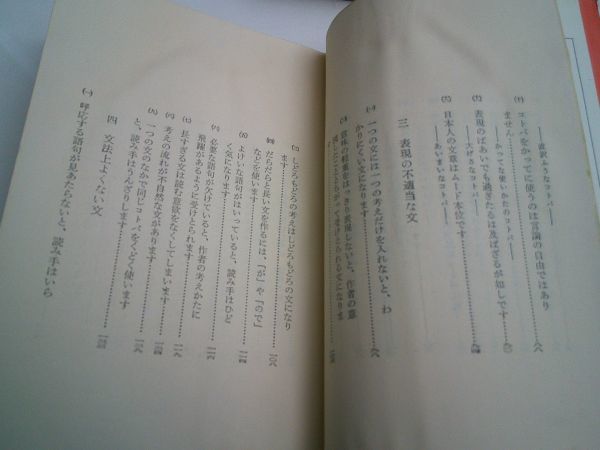 ――直訳ふうなコトバ――
(七) コトバをかってに使うのは言論の自由ではあり
ません
――かってな使いかたのコトバ――
(八) 表現のばあいでも過ぎたるは及ばざるが如しです
――大げさなコトバ――
(九) 日本人の文章はムード本位です
――あいまいなコトバ――
三 表現の不適当な文
(一) 一つの文には一つの考えだけを入れないと、わ
かりにくい文になります
(二) 意味の軽重をはっきり表現しないと、作者の意
(三) しどろもどろの考えはしどろもどろの文になり
ます
(四) だらだらと長い文を作るには、「が」や「ので」
などを使います
(五) よけいな語句がはいっていると、読み手はひど
く気になります
(六) 必要な語句が欠けていると、作者の考えかたに
飛躍があるように受けとられます
(七) 長すぎる文は読む意欲をなくしてしまいます
(八) 考えの流れが不自然な文があります
(九) 一つの文のなかで同じコトバをくどく使います
と、読み手はうんざりします
四 文法上よくない文
(一) 呼応する語句が見あたらないと、読み手はいら